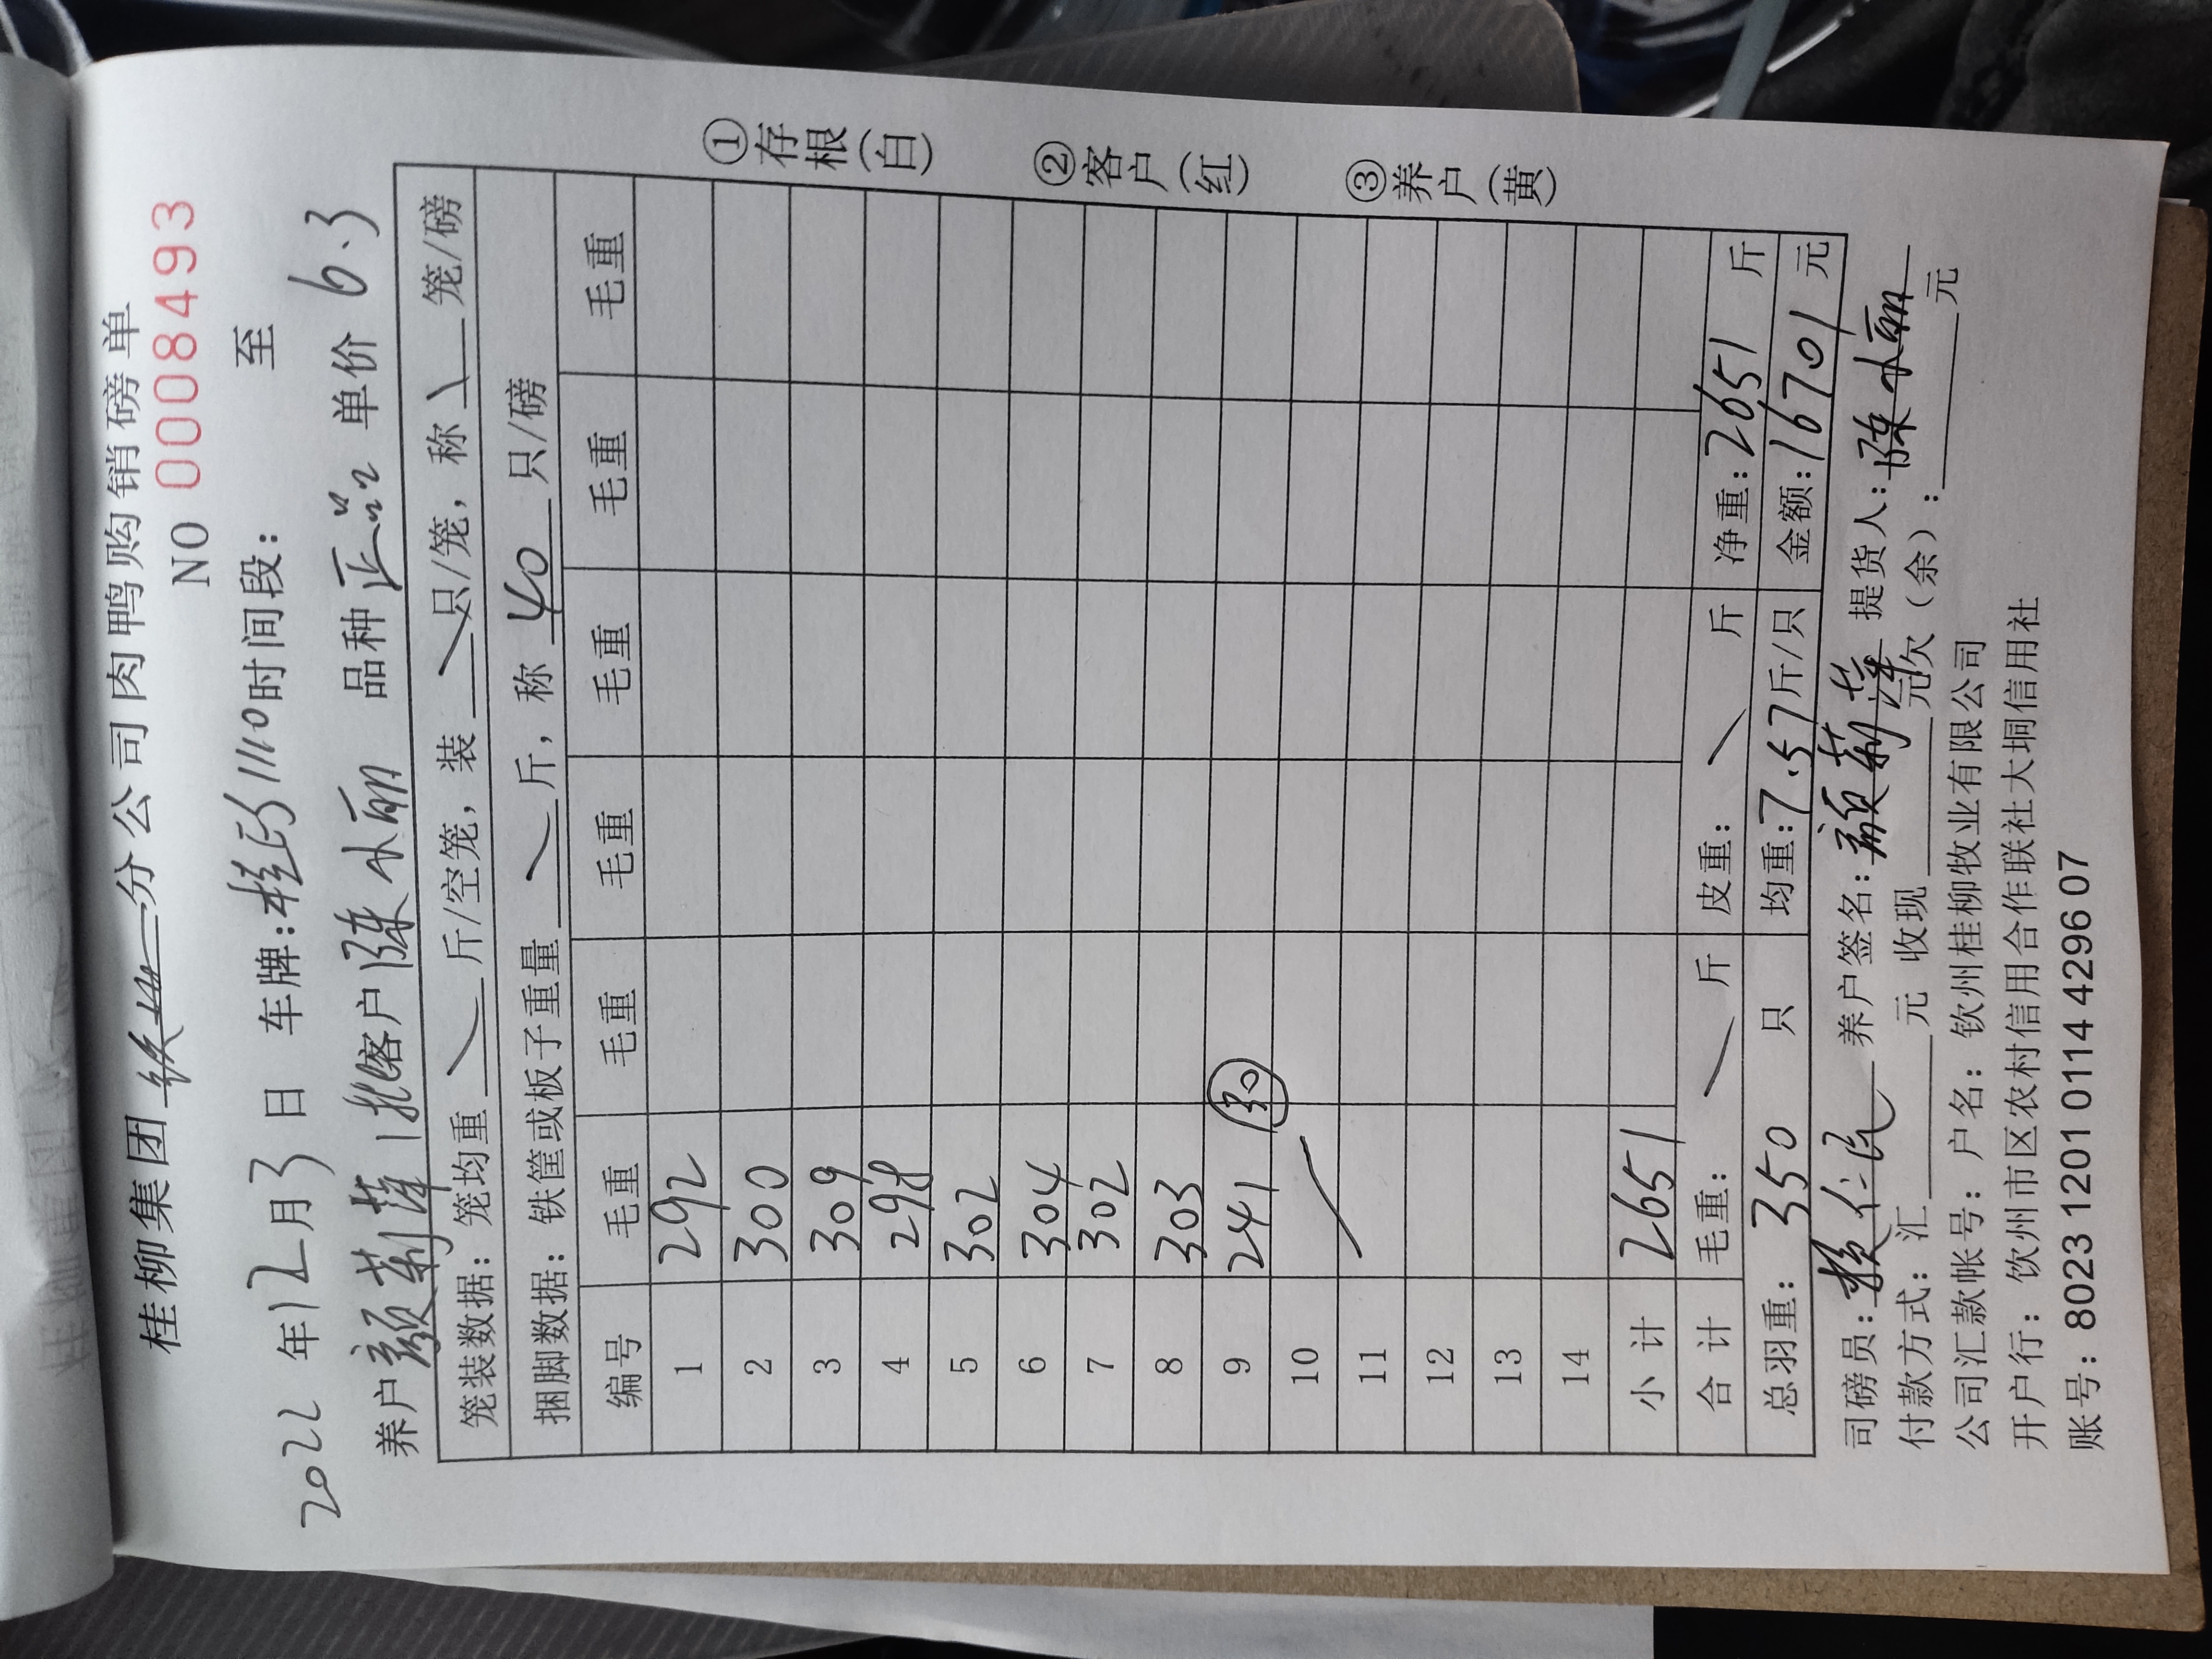 桂柳集团 钦州 分公司肉鸭购销磅单
NO 0008493
2022 年 12 月 3 日 车牌: 1110 时间段: 至
养户 颜莉萍 批 客户 陈水丽 品种 正 单价 6.3
笼装数据: 笼均重 斤/空笼, 装 只/笼, 称 笼/磅
捆脚数据: 铁筐或板子重量 斤, 称 40 只/磅
编号 毛重 毛重 毛重 毛重 毛重 毛重
1 292
2 300
3 309
4 298
5 302
6 304
7 302
8 303
9 241 30
10
11
12
13
14
小计 2651
合计 毛重: 斤 皮重: 斤 净重: 2651 斤
总羽重: 350 只 均重: 7.57 斤/只 金额: 16701 元
司磅员: 养户签名: 颜莉萍 提货人: 陈水丽
付款方式: 汇 元 收现 元欠(余): 元
公司汇款帐号: 户名: 钦州桂柳牧业有限公司
开户行: 钦州市区农村信用合作联社大垌信用社
账号: 8023 1201 0114 4296 07
①存根(白)
②客户(红)
③养户(黄)